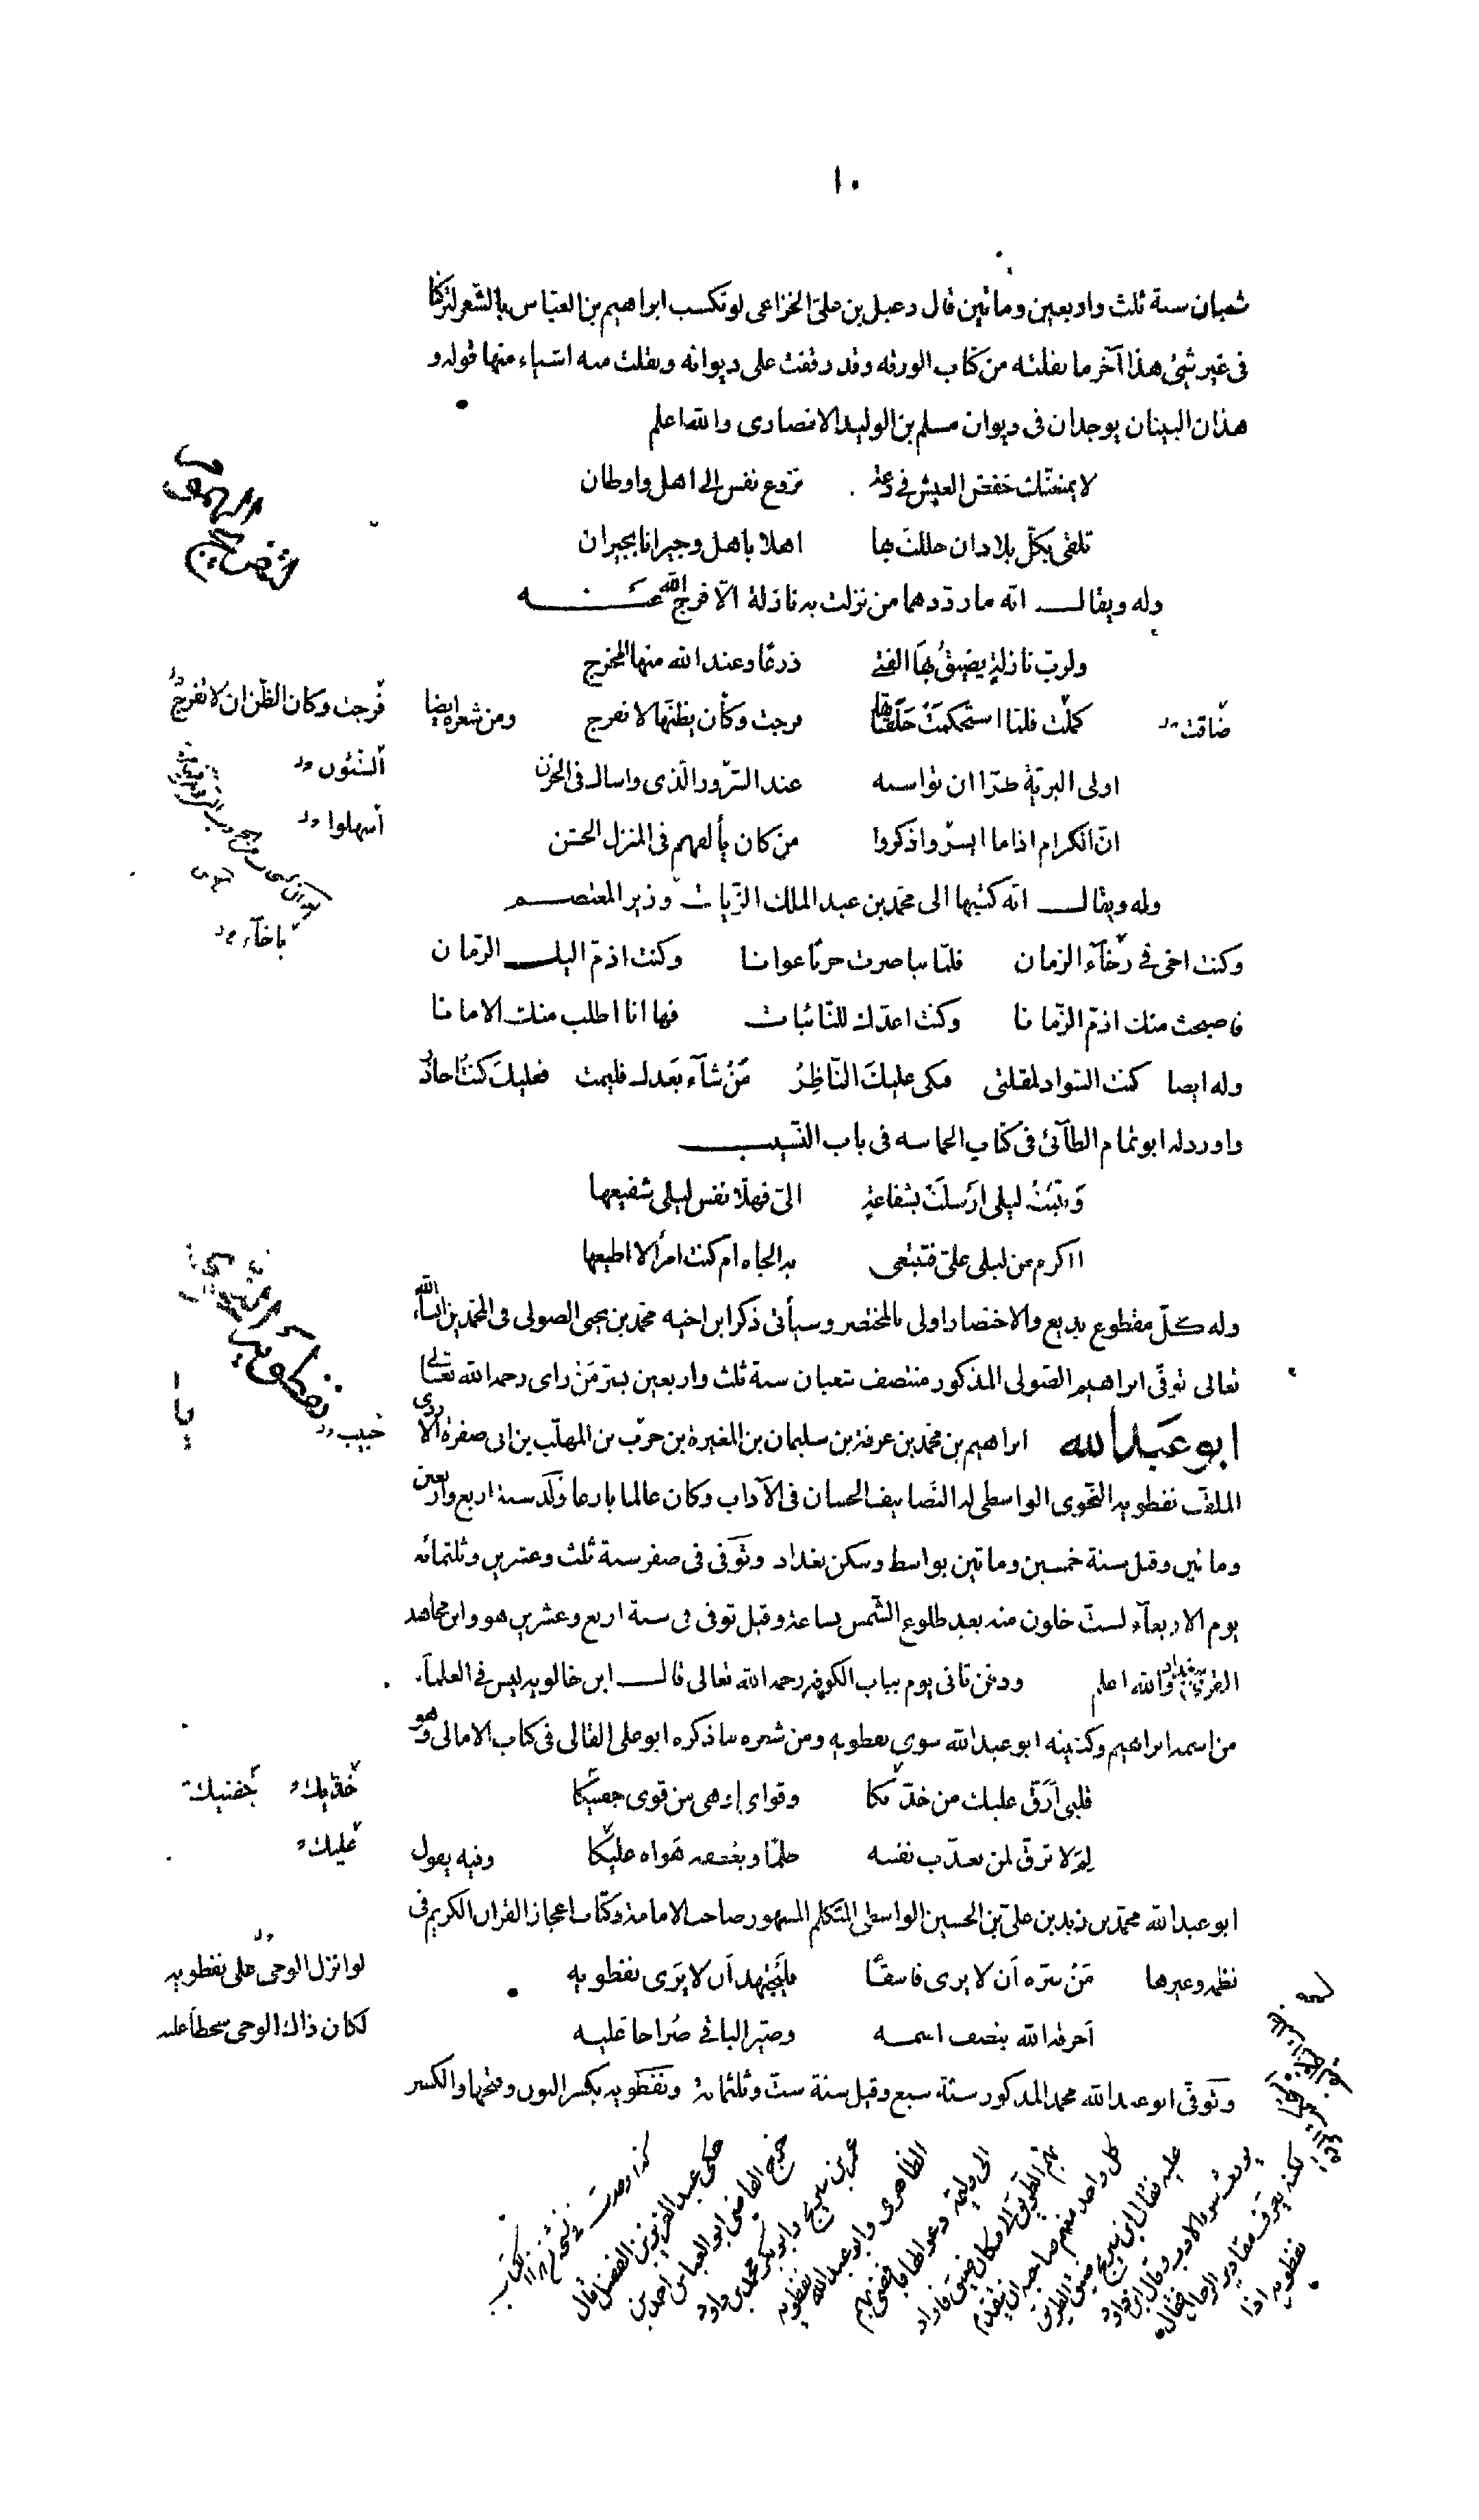 ١٠
شعبان سنة ثلث واربعين وماتين قال دعبل بن علىّ الخزاعى لو تكسب ابراهيم بن العبّاس بالشّعر لتركنا
فى غير شئ هذا آخر ما نقلته من كتاب الورقه وقد وقفت على ديوانه ونقلت منه اشياء منها قوله و
هذان البيتان يوجدان فى ديوان مسلم بن الوليد الانصارى والله اعلم
لا يمنعنّك خفض العيش فى دعة نزوع نفس الى اهل واوطان
تلقى بكلّ بلاد ان حللت بها اهلا باهل وجيرانا بجيران
وله ويقال انّه ما ردّدهما من نزلت به نازلة الّا فرج الله عنه
ولربّ نازلةٍ يضيقُ بها الفتى ذرعًا وعند الله منها المخرج
ضاقت
كملّت فلمّا استحكمَتْ حَلَقاتها فرجت وكان يظنّها لا تفرج ومن شعره ايضا
فرجت وكان الظّن ان لا تفرج
اولى البريّة طرّا ان تواسيه عند السّرور الّذى واساك فى الحزن
انّ الكرام اذا ما ايسرّوا ذكروا من كان يألفهم فى المنزل الخشن
اسهلوا
وله ويقال انّه كتبها الى محمّد بن عبد الملك الزّيات وزير المعتصم
باخآء
وكنت اخى فى رخآء الزمان فلمّا نبا صرت حربًا عوانا وكنت اذمّ اليك الزّمان
فاصبحت منك اذمّ الزّمانا وكنت اعدّك للنّائبات فها انا اطلب منك الامانا
وله ايضا كنت السّواد لمقلتى فبكى عليك النّاظِرُ مَنْ شآء بعَدك فليمت فعليكَ كنتُ احاذر
واورد له ابو تمام الطآئىّ فى كتاب الحماسه فى باب النّسيب
وَنبّئتُ ليلى ارَسلَتْ بشفاعةٍ الىّ فهلّا نفس ليلى شفيعها
ااكرم من ليلى علىّ فتبتغى به الجاه ام كنت امرأ لا اطيعها
وله كلّ مقطوع بديع والاختصار اولى بالمختصر وسيأتى ذكر ابن اخيه محمّد بن يحيى الصولى فى المحمّدين ان شآء الله
تعالى توفّى ابراهيم الصّولى المذكور منتصف شعبان سنة ثلث واربعين بسرّ مَنْ راى رحمه الله تعالى
ابو عبد الله ابراهيم بن محمّد بن عرفة بن سليمان بن المغيرة بن حرب بن المهلّب بن ابى صفرة الازدى
حبيب
الملقب نفطويه النّحوى الواسطى له التّصانيف الحسان فى الآداب وكان عالما بارعا وُلد سنة اربع واربعين
وماتين وقيل سنة خمسين وماتين بواسط وسكن بغداد وتُوفّى فى صفر سنة ثلث وعشرين وثلثمائه
يوم الاربعآء لستّ خلون منه بعد طلوع الشّمس بساعة وقيل توفى فى سنة اربع وعشرين هو وابن مجاهد
المقرى ببغداد والله اعلم ودفن ثانى يوم بباب الكوفه رحمه الله تعالى قال ابن خالويه ليس فى العلمآء
من اسمه ابراهيم وكنيته ابو عبد الله سوى نفطويه ومن شعره ما ذكره ابو على القالى فى كتاب الامالى وهو
قلبى اَرَقّ عليك من خدّيكا وقواى اوهى من قوى جفنيكا
خدّيك جفنيك
لِمَ لا ترقّ لمن يعذّب نفسه ظلمًا ويعطفه هَواه عليكا وفيه يقول
عليك
ابو عبد الله محمّد بن زيد بن علىّ بن الحسين الواسطى المتكلم المشهور صاحب الامامة وكتاب اعجاز القران الكريم فى
نظمه وغيرها مَنْ سرّه اَن لا يرى فاسقًا فليجتهد اَن لا يرَى نفطويه
لو انزل الوحى على نفطويه
اَحرقه الله بنصف اسمه وصيّر الباقى صُراخا عليه
لكان ذاك الوحى سخطًا عليه
وتوفّى ابو عبد الله محمد المذكور سنة سبع وقيل سنة ستّ وثلثمائة ونفطويه بكسر النون وفتحها والكسر
حكى عبد العزيز بن الفضل قال
خرج القاضى ابو العباس احمد بن
عمر بن سريج وابو بكر محمد بن داود
الظاهرى وابو عبد الله نفطويه
الى وليمة دعوا لها فافضى بهم
بهم الطّريق الى مكان ضيق فاراد
كل واحد منهم صاحبه ان يتقدم
عليه فقال ابن سريج ضيق الطريق
يورث سوء الادب وقال ابن داود
لكنه يعرف مقادير الرجال فقال
نفطويه اذا